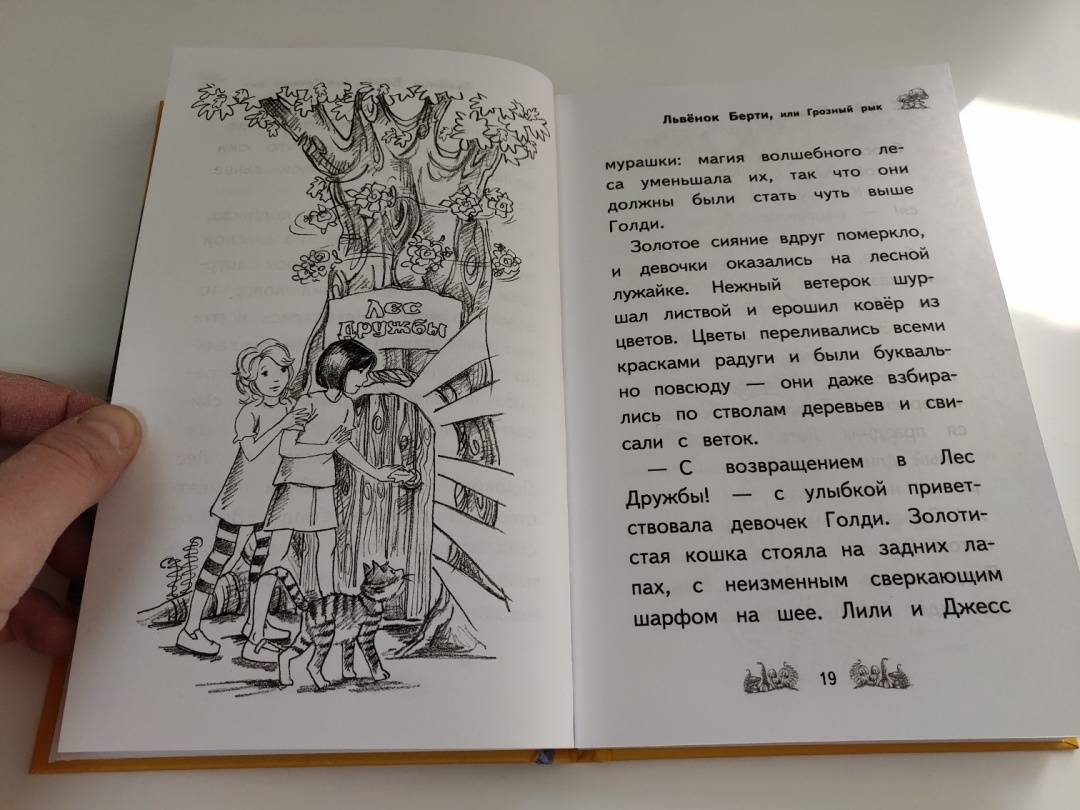 Лес
Дружбы
Львёнок Берти, или Грозный рык
мурашки: магия волшебного ле-
са уменьшала их, так что они
должны были стать чуть выше
Голди.
Золотое сияние вдруг померкло,
и девочки оказались на лесной
лужайке. Нежный ветерок шур-
шал листвой и ерошил ковёр из
цветов. Цветы переливались всеми
красками радуги и были букваль-
но повсюду — они даже взбира-
лись по стволам деревьев и сви-
сали с веток.
— С возвращением в Лес
Дружбы! — с улыбкой привет-
ствовала девочек Голди. Золоти-
стая кошка стояла на задних ла-
пах, с неизменным сверкающим
шарфом на шее. Лили и Джесс
19